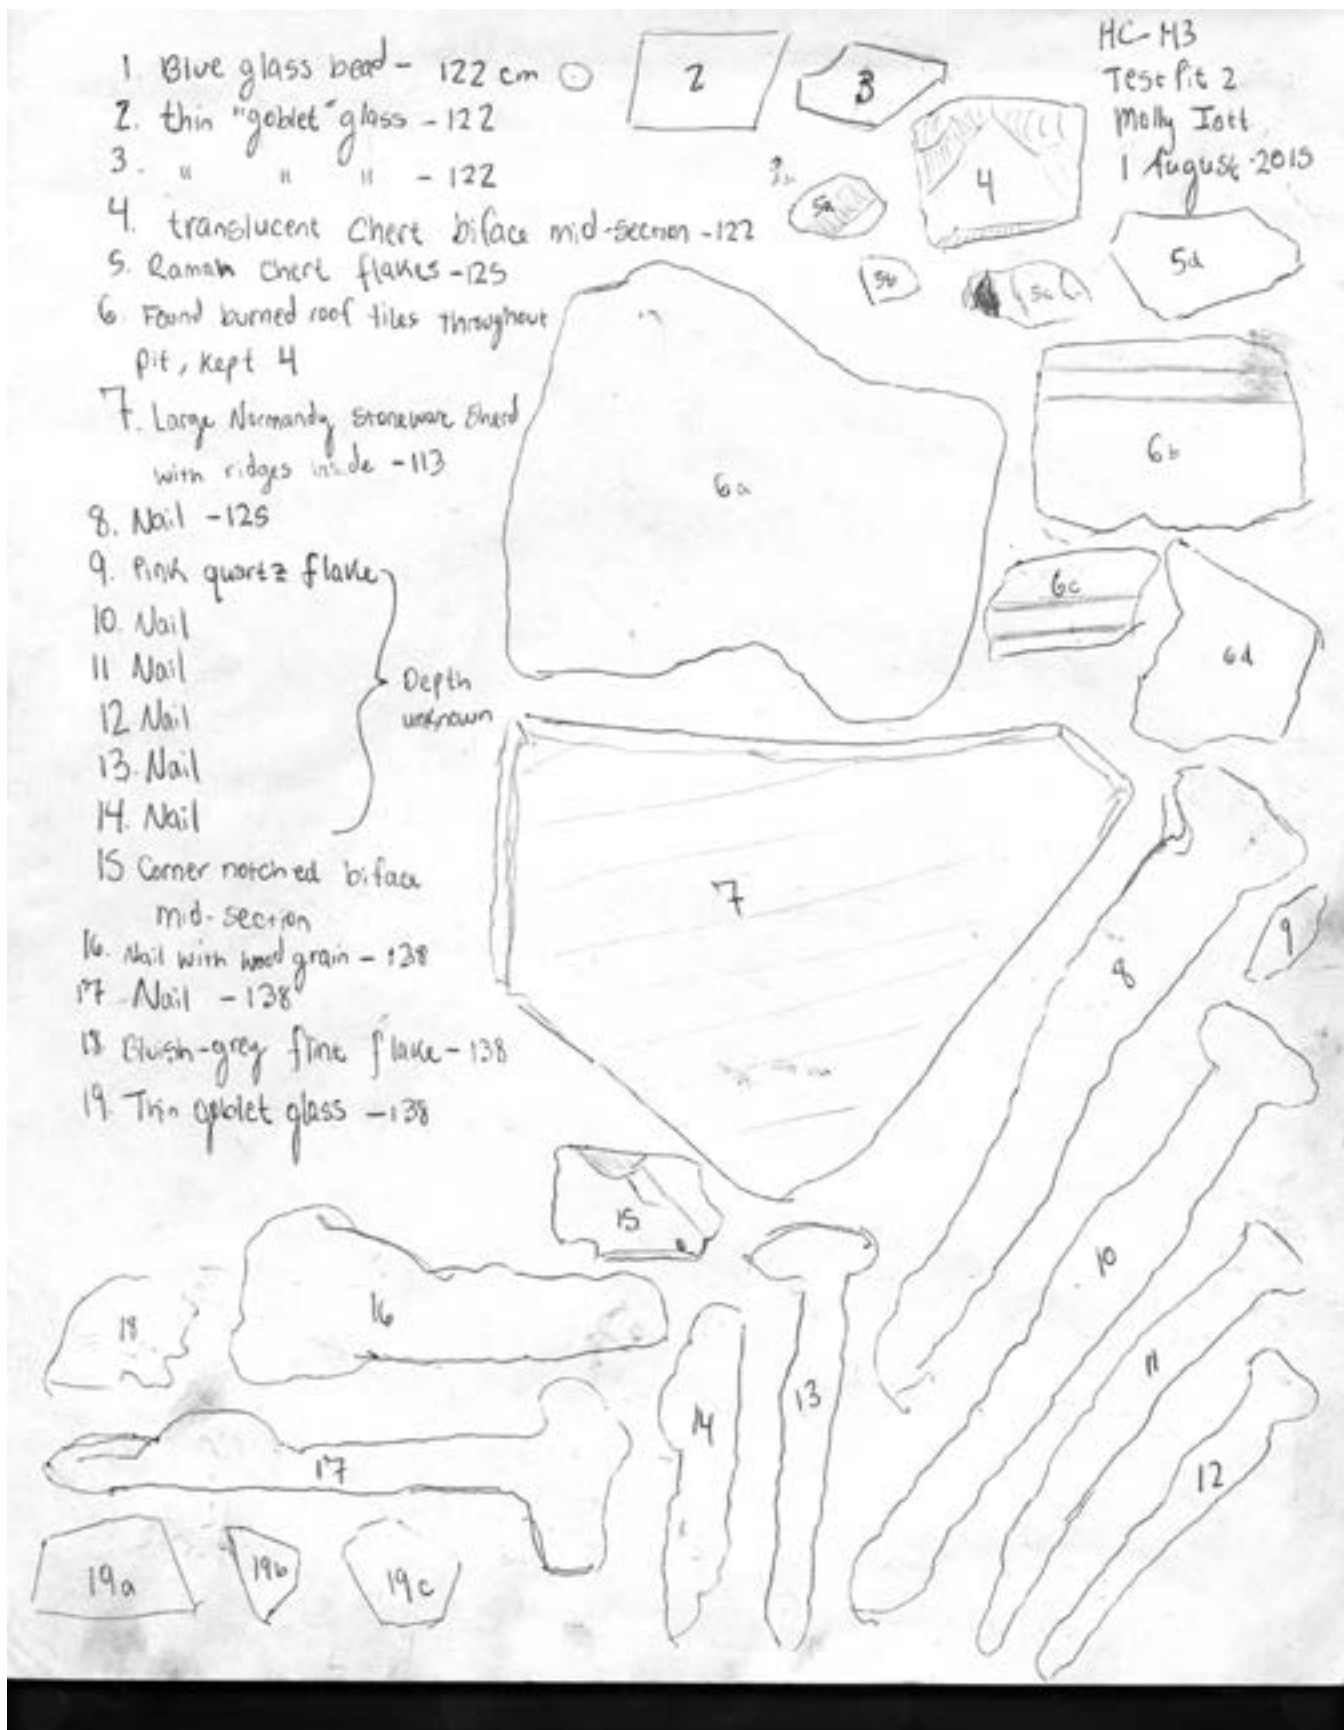 HC-M3
Test Pit 2
Molly Iott
1 August 2015
1. Blue glass bead - 122 cm
2. thin "goblet" glass - 122
3. " " " - 122
4. translucent chert biface mid-section - 122
5. Ramah chert flakes - 125
6. Found burned roof tiles throughout
pit, kept 4
7. Large Normandy stoneware sherd
with ridges inside - 113
8. Nail - 125
9. Pink quartz flake
10. Nail
11 Nail
12 Nail
13. Nail
14. Nail
Depth
unknown
15 Corner notched biface
mid-section
16. Nail with wood grain - 138
17 Nail - 138
18 Bluish-grey flint flake - 138
19. Thin goblet glass - 138
2
3
4
5a
5b
5c
5d
6a
6b
6c
6d
7
8
9
10
11
12
13
14
15
16
17
18
19a
19b
19c